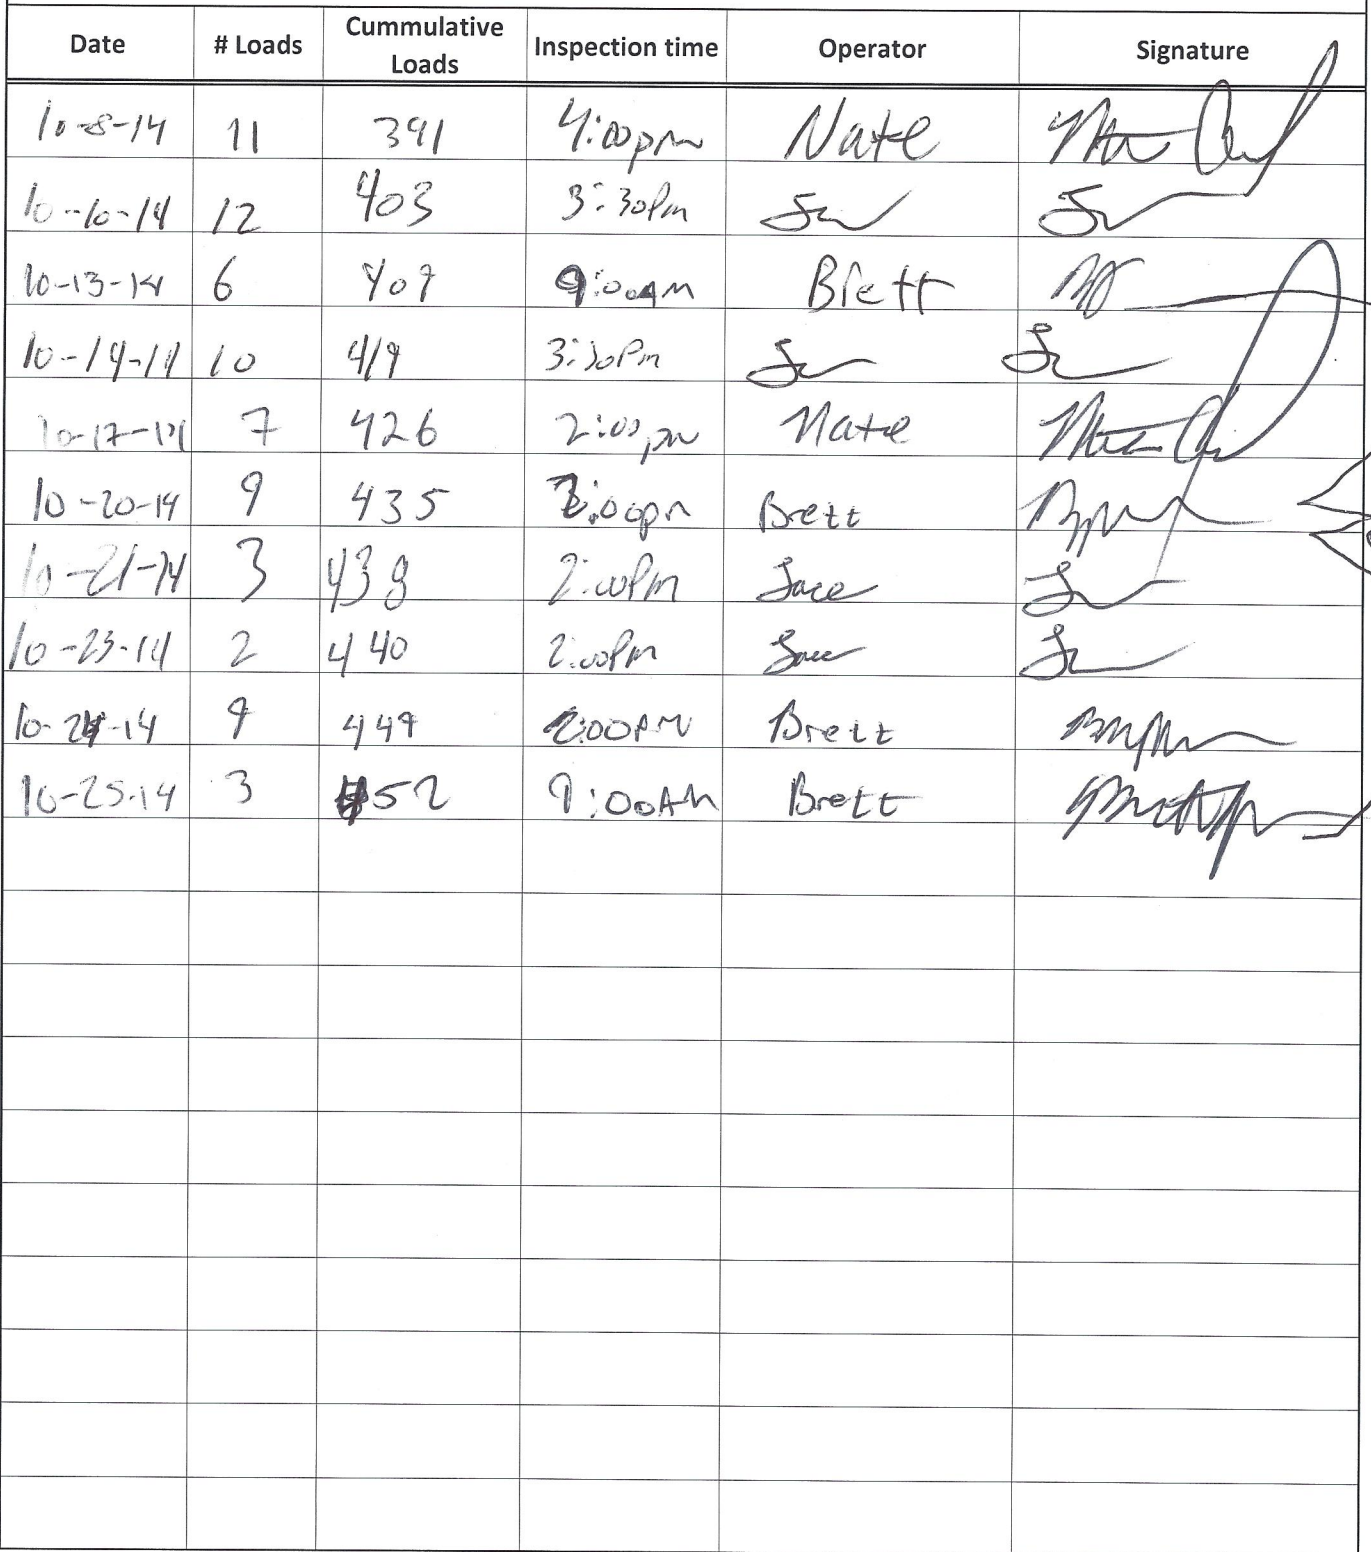 Date # Loads Cummulative Loads Inspection time Operator Signature
10-8-14 11 391 4:00pm Nate
10-10-14 12 403 3:30Pm
10-13-14 6 409 9:00AM Brett
10-14-14 10 419 3:30Pm
10-17-14 7 426 2:00pm Nate
10-20-14 9 435 :00pm Brett
10-21-14 3 438 2:00Pm Jace
10-23-14 2 440 2:00Pm Jace
10-24-14 9 449 2:00PM Brett
10-25-14 3 452 9:00AM Brett